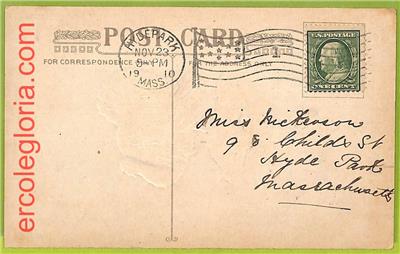 POST CARD
FOR CORRESPONDENCE
FOR THE ADDRESS ONLY
HYDE PARK
NOV 23
PM
1910
MASS.
1
U.S. POSTAGE
ONE CENT
Miss Nickerson
9 Childs St
Hyde Park
Massachusetts
ercolegloria.com